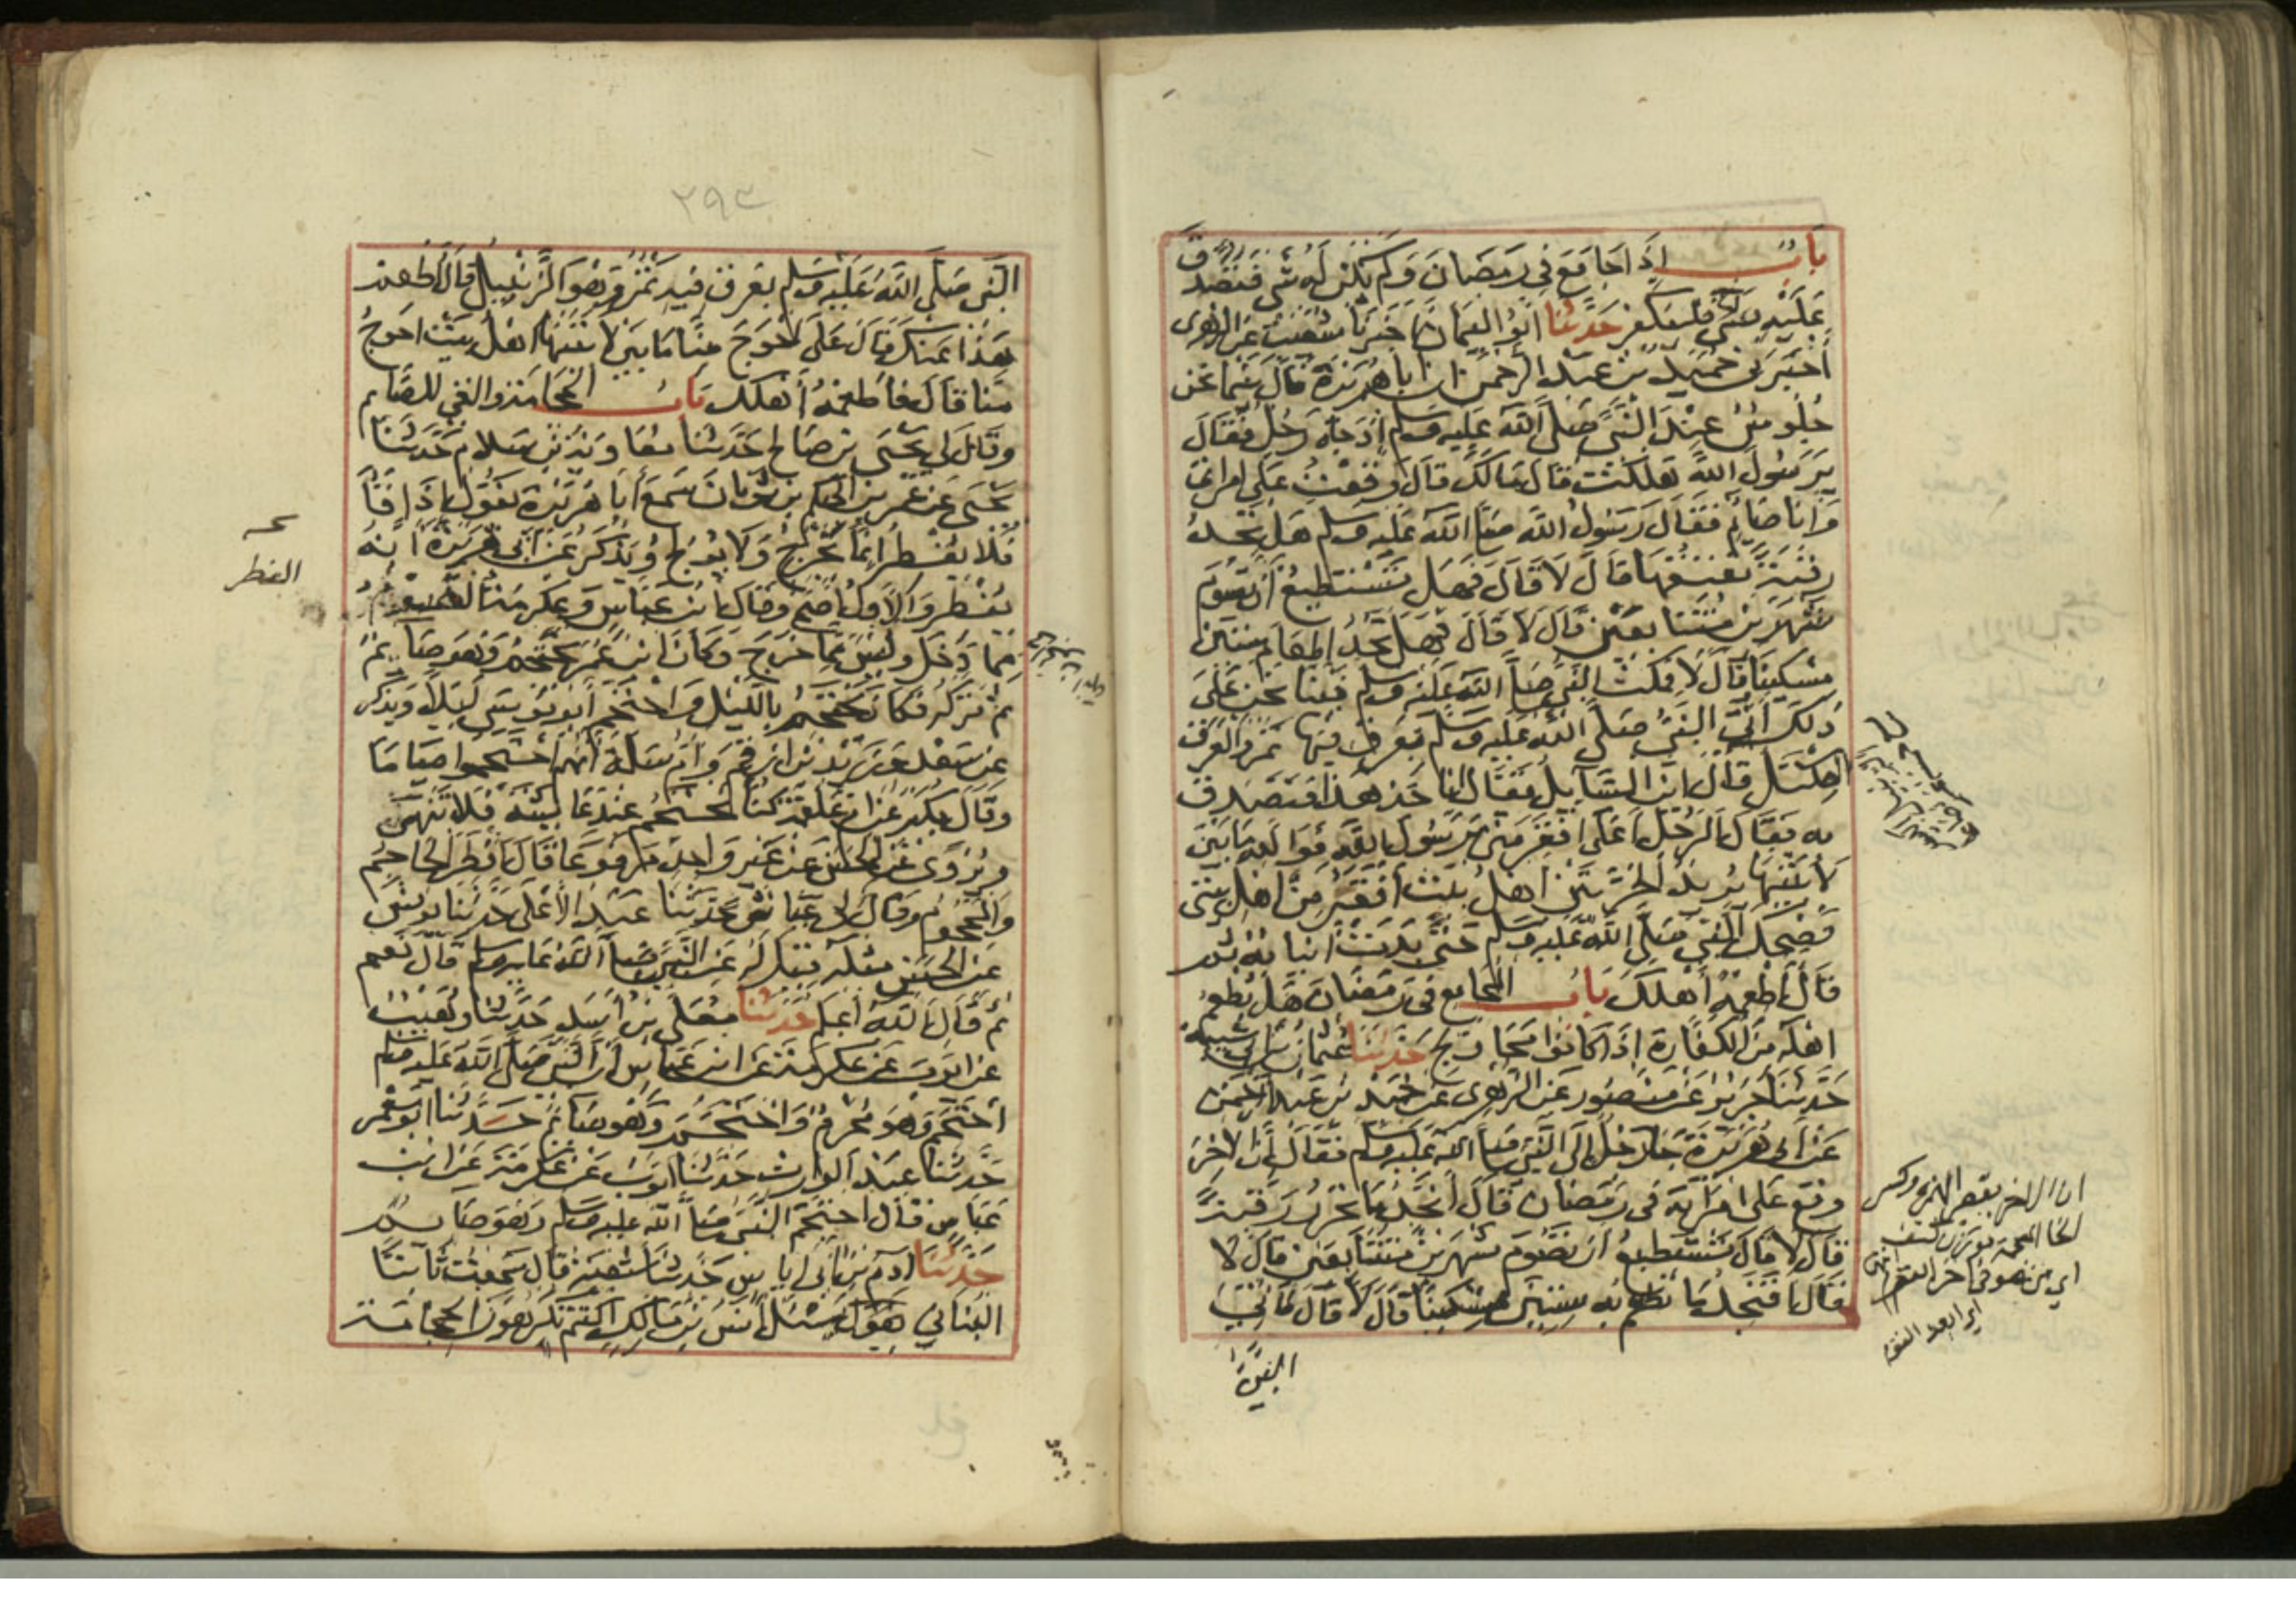 باب إذا جامع في رمضان ولم يكن له شيء فتصدق
عليه فليكفر حدثنا أبو اليمان أخبرنا شعيب عن الزهري
أخبرني حميد بن عبد الرحمن أن أبا هريرة قال بينما نحن
جلوس عند النبي صلى الله عليه وسلم إذ جاءه رجل فقال
يا رسول الله هلكت قال مالك قال وقعت على امرأتي
وأنا صائم فقال رسول الله صلى الله عليه وسلم هل تجد
رقبة تعتقها قال لا قال فهل تستطيع أن تصوم
شهرين متتابعين قال لا قال فهل تجد إطعام ستين
مسكينا قال لا فمكث النبي صلى الله عليه وسلم فبينا نحن على
ذلك أتي النبي صلى الله عليه وسلم بعرق فيها تمر والعرق
المكتل قال أين السائل فقال أنا خذ هذا فتصدق
به فقال الرجل أعلى أفقر مني يا رسول الله فوالله ما بين
لابتيها يريد الحرتين أهل بيت أفقر من أهل بيتي
فضحك النبي صلى الله عليه وسلم حتى بدت أنيابه ثم
قال أطعمه أهلك باب المجامع في رمضان هل يطعم
أهله من الكفارة إذا كانوا محاويج حدثنا عثمان بن أبي شيبة
حدثنا جرير عن منصور عن الزهري عن حميد بن عبد الرحمن
عن أبي هريرة جاء رجل إلى النبي صلى الله عليه وسلم فقال إن الاخر
وقع على امرأته في رمضان قال أتجد ما تحرر رقبة
قال لا قال تستطيع أن تصوم شهرين متتابعين قال لا
قال أفتجد ما تطعم به ستين مسكينا قال لا قال فأتي
النبي
٢٩٣
النبي صلى الله عليه وسلم بعرق فيه تمر وهو الزبيل قال أطعم
هذا عنك قال على أحوج منا ما بين لابتيها أهل بيت أحوج
منا قال فأطعمه أهلك باب الحجامة والقيء للصائم
وقال لي يحيى بن صالح حدثنا معاوية بن سلام حدثنا
يحيى عن عمر بن الحكم بن ثوبان سمع أبا هريرة يقول إذا قاء
فلا يفطر إنما يخرج ولا يولج ويذكر عن أبي هريرة أنه
يفطر والأول أصح وقال ابن عباس وعكرمة
الفطر
مما دخل وليس مما خرج وكان ابن عمر يحتجم وهو صائم
ثم تركه فكان يحتجم بالليل واحتجم أبو موسى ليلا ويذكر
عن سعد وزيد بن أرقم وأم سلمة أنهم احتجموا صياما
وقال بكير عن أم علقمة كنا نحتجم عند عائشة فلا تنهى
ويروى عن الحسن عن غير واحد مرفوعا قال أفطر الحاجم
والمحجوم وقال لي عياش حدثنا عبد الأعلى حدثنا يونس
عن الحسن مثله قيل له عن النبي صلى الله عليه وسلم قال نعم
ثم قال الله أعلم حدثنا معلى بن أسد حدثنا وهيب
عن أيوب عن عكرمة عن ابن عباس أن النبي صلى الله عليه وسلم
احتجم وهو محرم واحتجم وهو صائم حدثنا أبو معمر
حدثنا عبد الوارث حدثنا أيوب عن عكرمة عن ابن
عباس قال احتجم النبي صلى الله عليه وسلم وهو صائم
حدثنا آدم بن أبي إياس حدثنا شعبة قال سمعت ثابتا
البناني يسئل أنس بن مالك أكنتم تكرهون الحجامة